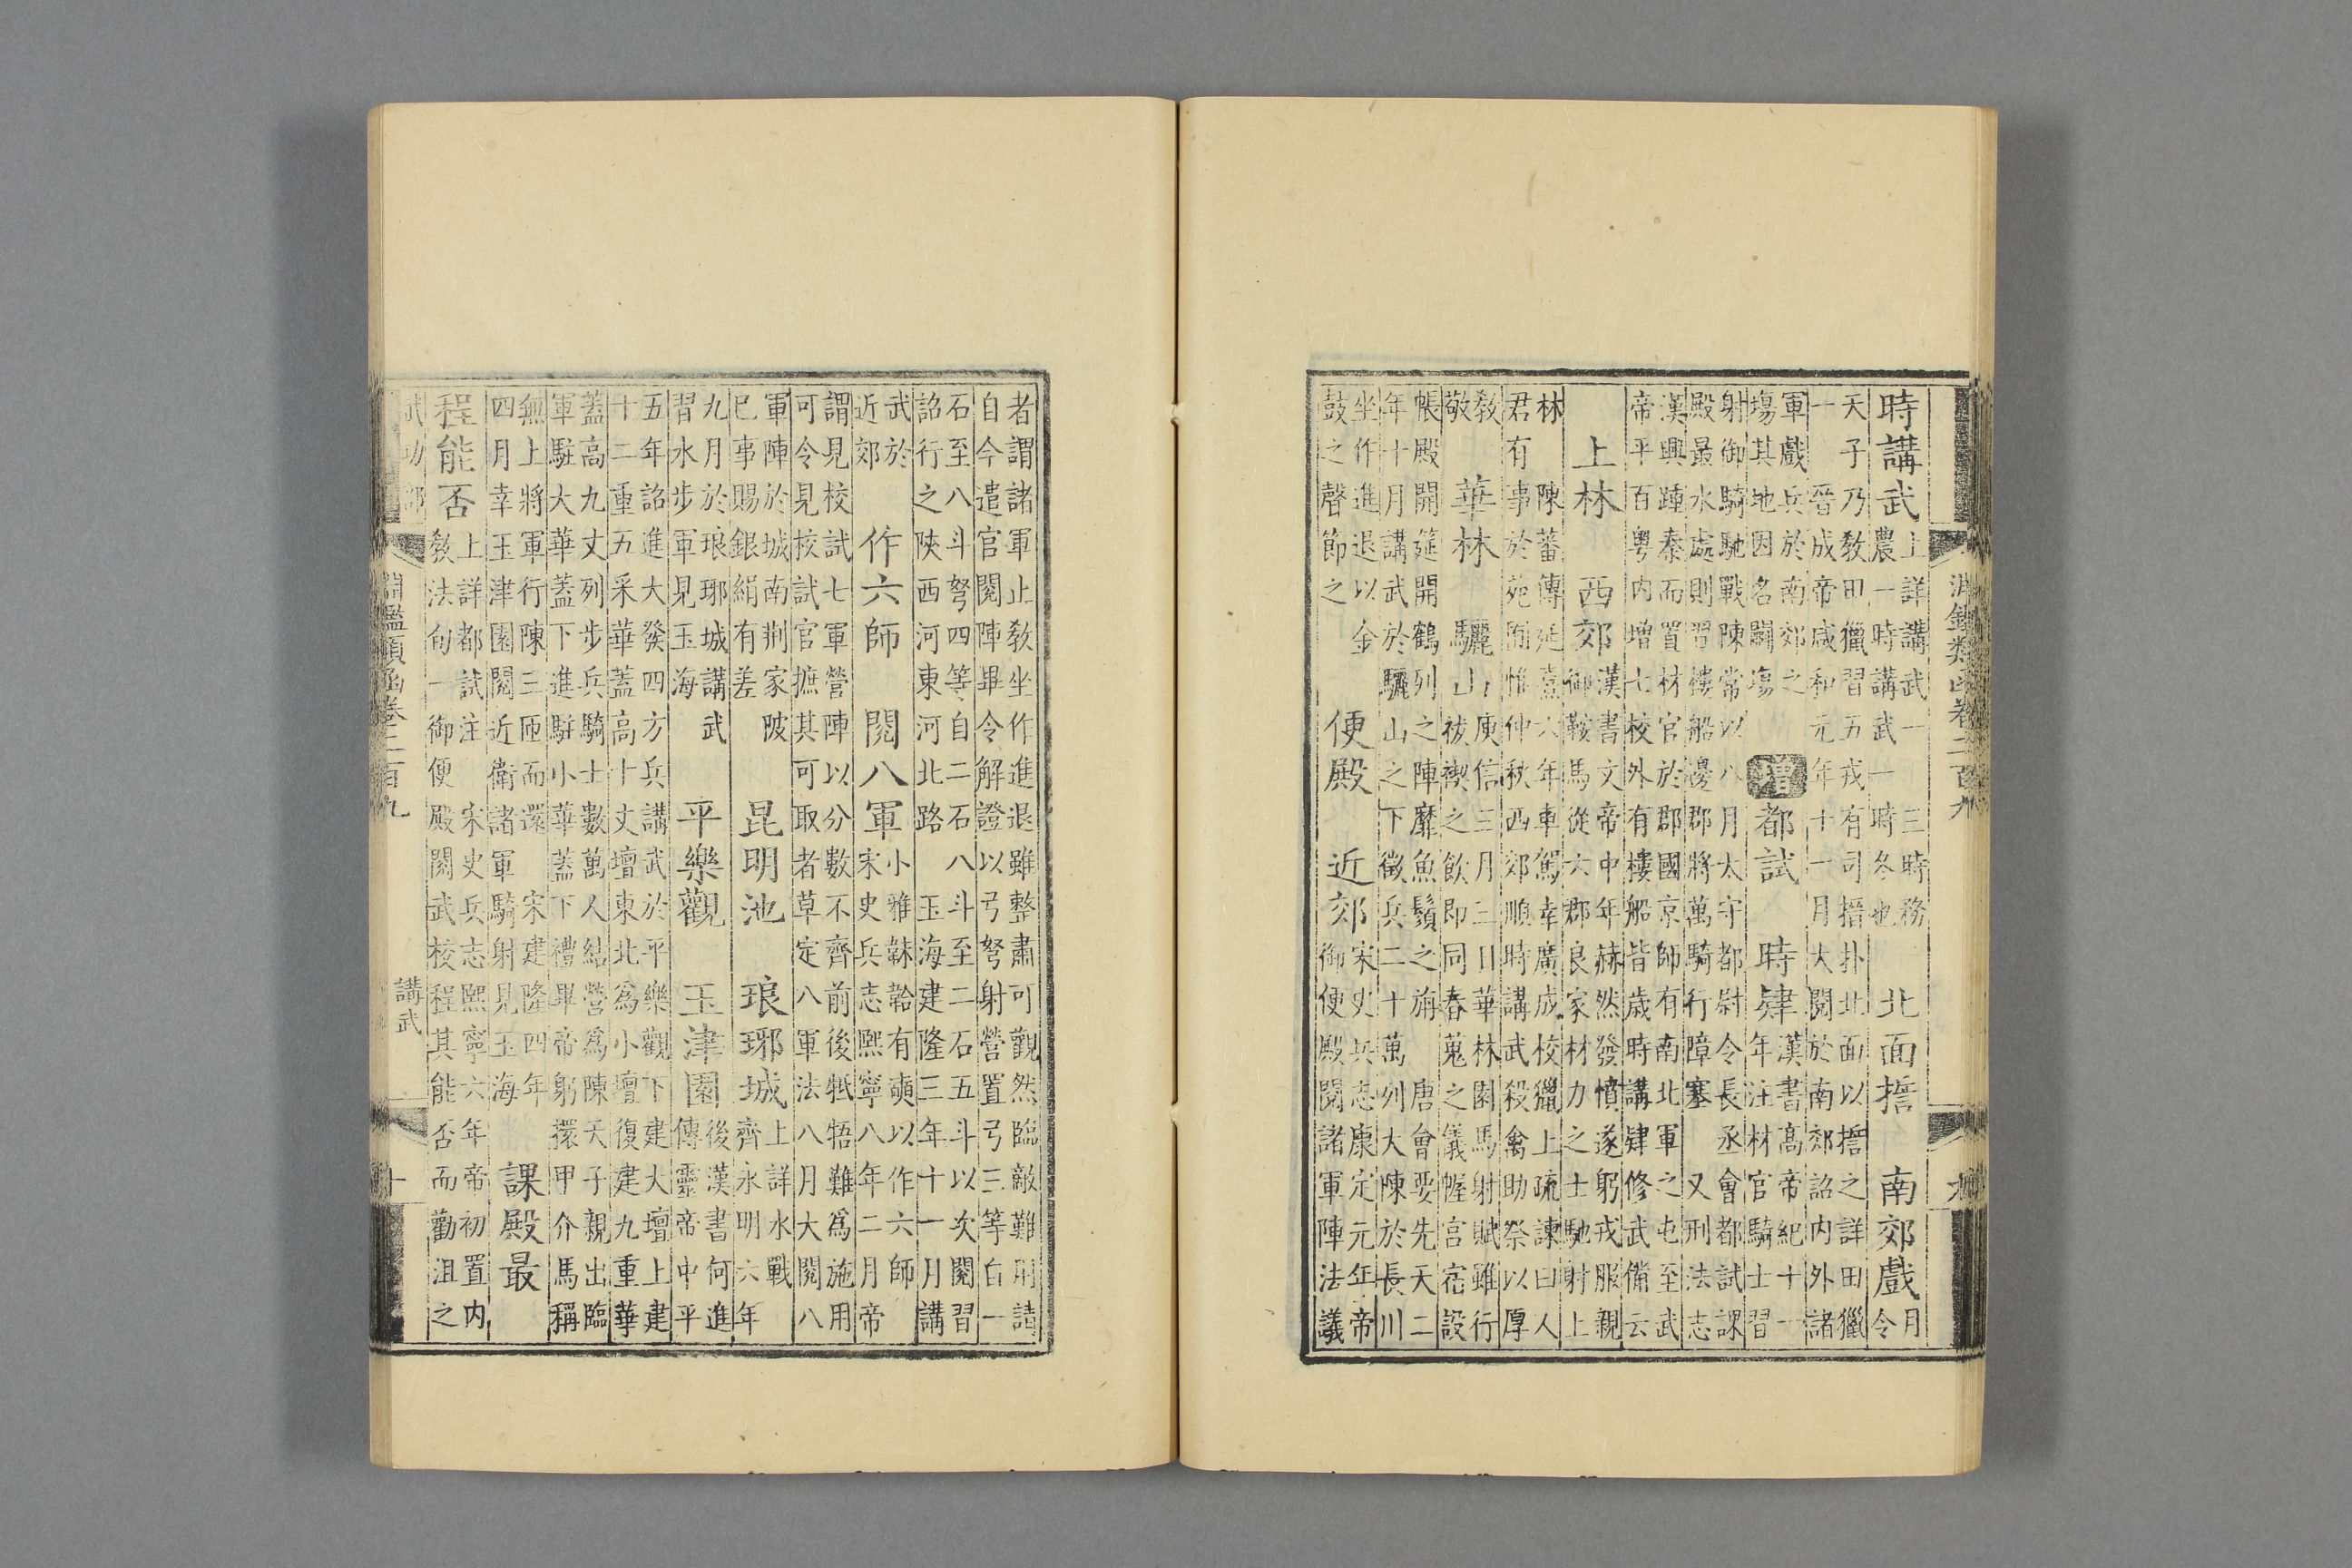 淵鑑類函卷二百九　九
時講武
上詳講武一　三時務
農一時講武一時冬也
北面搢　南郊戲
月
令
天子乃教田獵習五戎有司搢扑北面以搢之詳田獵
一　晉成帝咸和元年十一月大閱於南郊詔内外諸
軍戲兵於南郊之
塲其地因名鬭塲
增都試　時肄
漢書高帝紀十一
年注材官騎士習
射御騎馳戰陳常以八月太守都尉令長丞會都試課
殿最水處則習樓船邊郡將萬騎行障塞　又刑法志
漢興踵秦而置材官於郡國京師有南北軍之屯至武
帝平百粤内增七校外有樓船皆歲時講肄修武備云
上林　西郊
漢書文帝中年赫然發憤遂躬戎服親
御鞍馬從六郡良家材力之士馳射上
林　陳蕃傳延熹六年車駕幸廣成校獵上疏諫曰人
君有事於苑囿惟仲秋西郊順時講武殺禽助祭以厚
教
敬
華林　驪山
庾信三月三日華林園馬射賦雖行
祓禊之飲即同春蒐之儀幄宮宿設
帳殿開筵開鶴列之陣靡魚鬚之旃　唐會要先天二
年十月講武於驪山之下徵兵二十萬列大陳於長川
坐作進退以金
鼓之聲節之
便殿　近郊
宋史兵志康定元年帝
御便殿閲諸軍陣法議
者謂諸軍止教坐作進退雖整肅可觀然臨敵難用請
自今遣官閲陣畢令解證以弓弩射營置弓三等自一
石至八斗弩四等自二石八斗至二石五斗以次閲習
詔行之陝西河東河北路　玉海建隆三年十一月講
武於
近郊
作六師　閲八軍
小雅韎韐有奭以作六師
宋史兵志熙寧八年二月帝
謂見校試七軍營陣以分數不齊前後牴牾難爲施用
可令見校試官摭其可取者草定八軍法八月大閲八
軍陣於城南荆家陂
已事賜銀絹有差
昆明池　琅琊城
上詳水戰
齊永明六年
九月於琅琊城講武
習水步軍見玉海
平樂觀　玉津園
後漢書何進
傳靈帝中平
五年詔進大發四方兵講武於平樂觀下建大壇上建
十二重五采華蓋高十丈壇東北爲小壇復建九重華
蓋高九丈列步兵騎士數萬人結營爲陳天子親出臨
軍駐大華蓋下進駐小華蓋下禮畢帝躬擐甲介馬稱
無上將軍行陳三匝而還　宋建隆四年
四月幸玉津園閲近衛諸軍騎射見玉海
課殿最
程能否
上詳都試注　宋史兵志熙寧六年帝初置内
敎法旬一御便殿閲武校程其能否而勸沮之
武功部
淵鑑類函卷二百九　講武　十